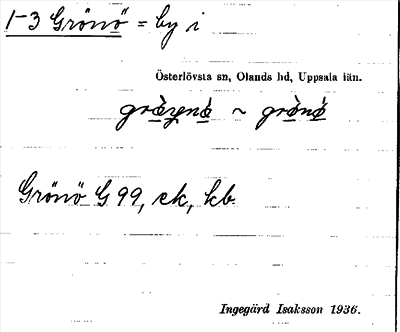 1-3 Grönö = by i
Österlövsta sn, Olands hd, Uppsala län.
~
Grönö G 99, ek, kb
Ingegärd Isaksson 1936.